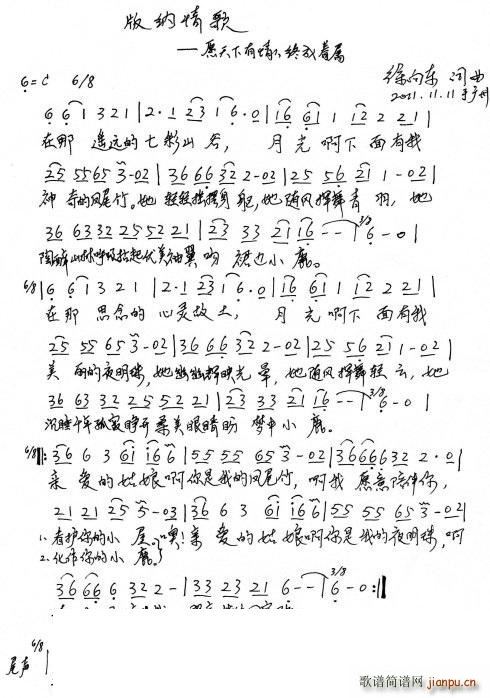 版纳情歌
——愿天下有情人终成眷属
6=C 6/8
徐向东 词曲
2011.11.11于广州
6 6 1 3 2 1 | 2·1 2 3 1 6·0 | 1 6 6 1 1 1 2 2 2 1 |
在那 遥远的七彩山谷, 月光啊下面有我
2 5 5 5 6 5 3-0 2 | 3 6 6 6 3 2 2-0 2 | 2 5 5 6 2 1 1-0 2 |
神奇的凤尾竹。她轻轻摇摆身躯,她随风挥舞青羽,她
3 6 6 3 3 2 2 5 5 2 2 1 | 2 3 3 3 2 1 1 6 -- | 3/8 6 - 0 |
6/8 | 6 6 1 3 2 1 | 2·1 2 3 1 6·0 | 1 6 6 1 1 1 2 2 2 1 |
在那 思念的心灵故土, 月光啊下面有我
2 5 5 5 6 5 3-0 2 | 3 6 6 6 3 2 2-0 2 | 2 5 5 6 2 1 1-0 2 |
美丽的夜明珠,她幽幽挥映光晕,她随风挥舞轻云,她
3 6 6 3 3 2 2 5 5 2 2 1 | 2 3 3 3 2 1 1 6 -- | 3/8 6 - 0 |
沉睡千年孤寂睁开柔美眼睛盼 梦中小鹿。
6/8 ‖: 3 6 6 3 6 1 1 6 6 | 5 5 5 5 6 5 3-0 2 | 3 6 6 6 6 3 2 2·0 |
亲爱的姑娘啊你是我的凤尾竹,啊我愿意陪伴你,
2 1 2 1 2 5 5-0 3 | 3 6 6 3 6 1 1 6 6 | 5 5 5 5 6 5 3-0 2 |
1.看护你的小屋。噢!亲爱的姑娘啊你是我的夜明珠,啊
2.化作你的小鹿。
3 6 6 6 6 3 2 2 - | 3 3 2 3 2 1 6 -- | 3/8 6 - 0 :‖
6/8
尾声 |
歌谱简谱网
jianpu.cn